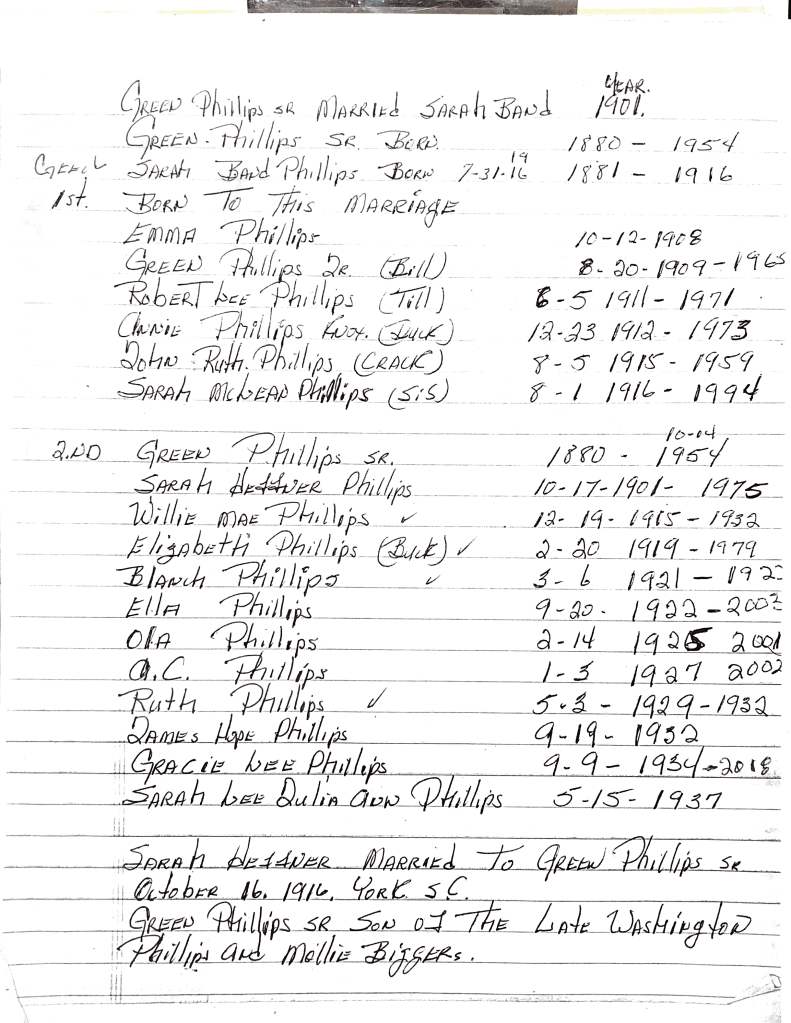 YEAR.
GREEN Phillips SR MARRIED SARAH BAND 1901.
GREEN. Phillips SR. BORN. 1880 - 1954
SARAH BAND Phillips BORN 7-31-16 19 1881 - 1916
1st. BORN TO THIS MARRIAGE
EMMA Phillips 10-12-1908
GREEN Phillips JR. (Bill) 8-20-1909-1965
ROBERT LEE Phillips (Till) 6-5 1911-1971
ANNIE Phillips KNOX. (DUCK) 12-23 1912-1973
JOHN RUTH. Phillips (CRACK) 8-5 1915-1959
SARAH McLEAN Phillips (SiS) 8-1 1916-1994
10-04
2.ND GREEN Phillips SR. 1880 - 1954
SARAH HEFFNER Phillips 10-17-1901- 1975
Willie MAE Phillips ✓ 12-19-1915-1932
Elizabeth Phillips (Buck) ✓ 2-20 1919-1979
BLANCH Phillips ✓ 3-6 1921-192
ELLA Phillips 9-20- 1922-2003
OlA Phillips 2-14 1925 2001
A.C. Phillips 1-3 1927 2002
RUTH Phillips ✓ 5-3-1929-1932
JAMES HOPE Phillips 9-19-1932
GRACIE LEE Phillips 9-9-1934-2018
SARAH LEE JULIA ANN Phillips 5-15-1937
SARAH HEFFNER MARRIED TO GREEN Phillips SR
OCTOBER 16. 1916. YORK S.C.
GREEN Phillips SR SON OF THE LATE WASHINGTON
Phillips AND Mollie BIGGERS.